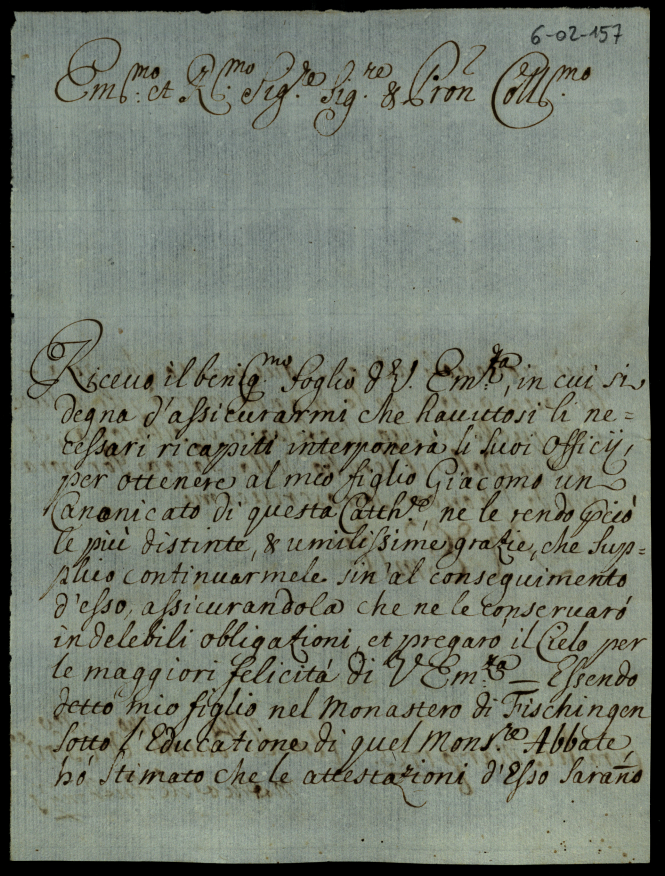 6-02-157
Em.mo et R.mo Sig.re Sig.re & Pron Coll.mo
Ricevo il benig.mo foglio di V. Em.za, in cui si
degna d'assicurarmi che havuttosi li ne=
cessari ricapiti interponerà li suoi Officij,
per ottenere al mio figlio Giacomo un
Canonicato di questa Catth.le, ne le rendo pciò
le più distinte, & umilissime grazie, che sup=
plico continuarmele sin'al conseguimento
d'esso, assicurandola che ne le conservaró
indelebili obligazioni, et pregaró il Cielo per
le maggiori felicitá di V Em.za = Essendo
detto mio figlio nel Monastero di Fischingen
sotto l'Educatione di quel Mons.re Abbate,
hó stimato che le attestazioni d'Esso saraño